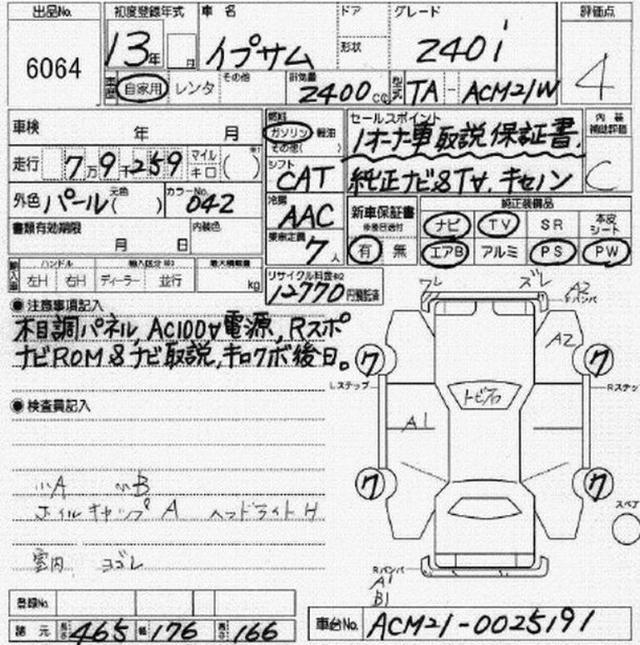 出品No. 初度登録年式 車名 ドア グレード 評価点
6064 13年 月 イプサム 形状 240i 4
車歴 自家用 レンタ その他 排気量 2400cc 型式 TA-ACM21W
車検 年 月 燃料 ガソリン 軽油 その他( ) セールスポイント 内装補助評価
1オーナー車取説保証書、 C
走行 7万9千259 マイル キロ ( ) シフト CAT 純正ナビ&TV、キセノン
外色 パール 元色( ) カラーNo. 042 冷房 AAC 新車保証書 有 無 純正装備品
ナビ TV SR 本皮シート
書類有効期限 月 日 内装色 乗車定員 7人 エアB アルミ PS PW
輸入車 ハンドル 左H 右H 輸入区分 ディーラー 並行 最大積載量 kg
リサイクル料金 12770円預託済
◉注意事項記入
木目調パネル、AC100V電源、Rスポ
ナビROM&ナビ取説、キロクボ後日。
フレ ズレ A2
Fバンパ
A2
7 7
Lステップ Rステップ
トビ石
A1
7 7
スペア
Rバンパ
A1
B1
◉検査員記入
小A 小B
ホイルキャップA ヘッドライトH
室内 ヨゴレ
登録No.
諸元 長さ 465 幅 176 高さ 166 車台No. ACM21-0025191